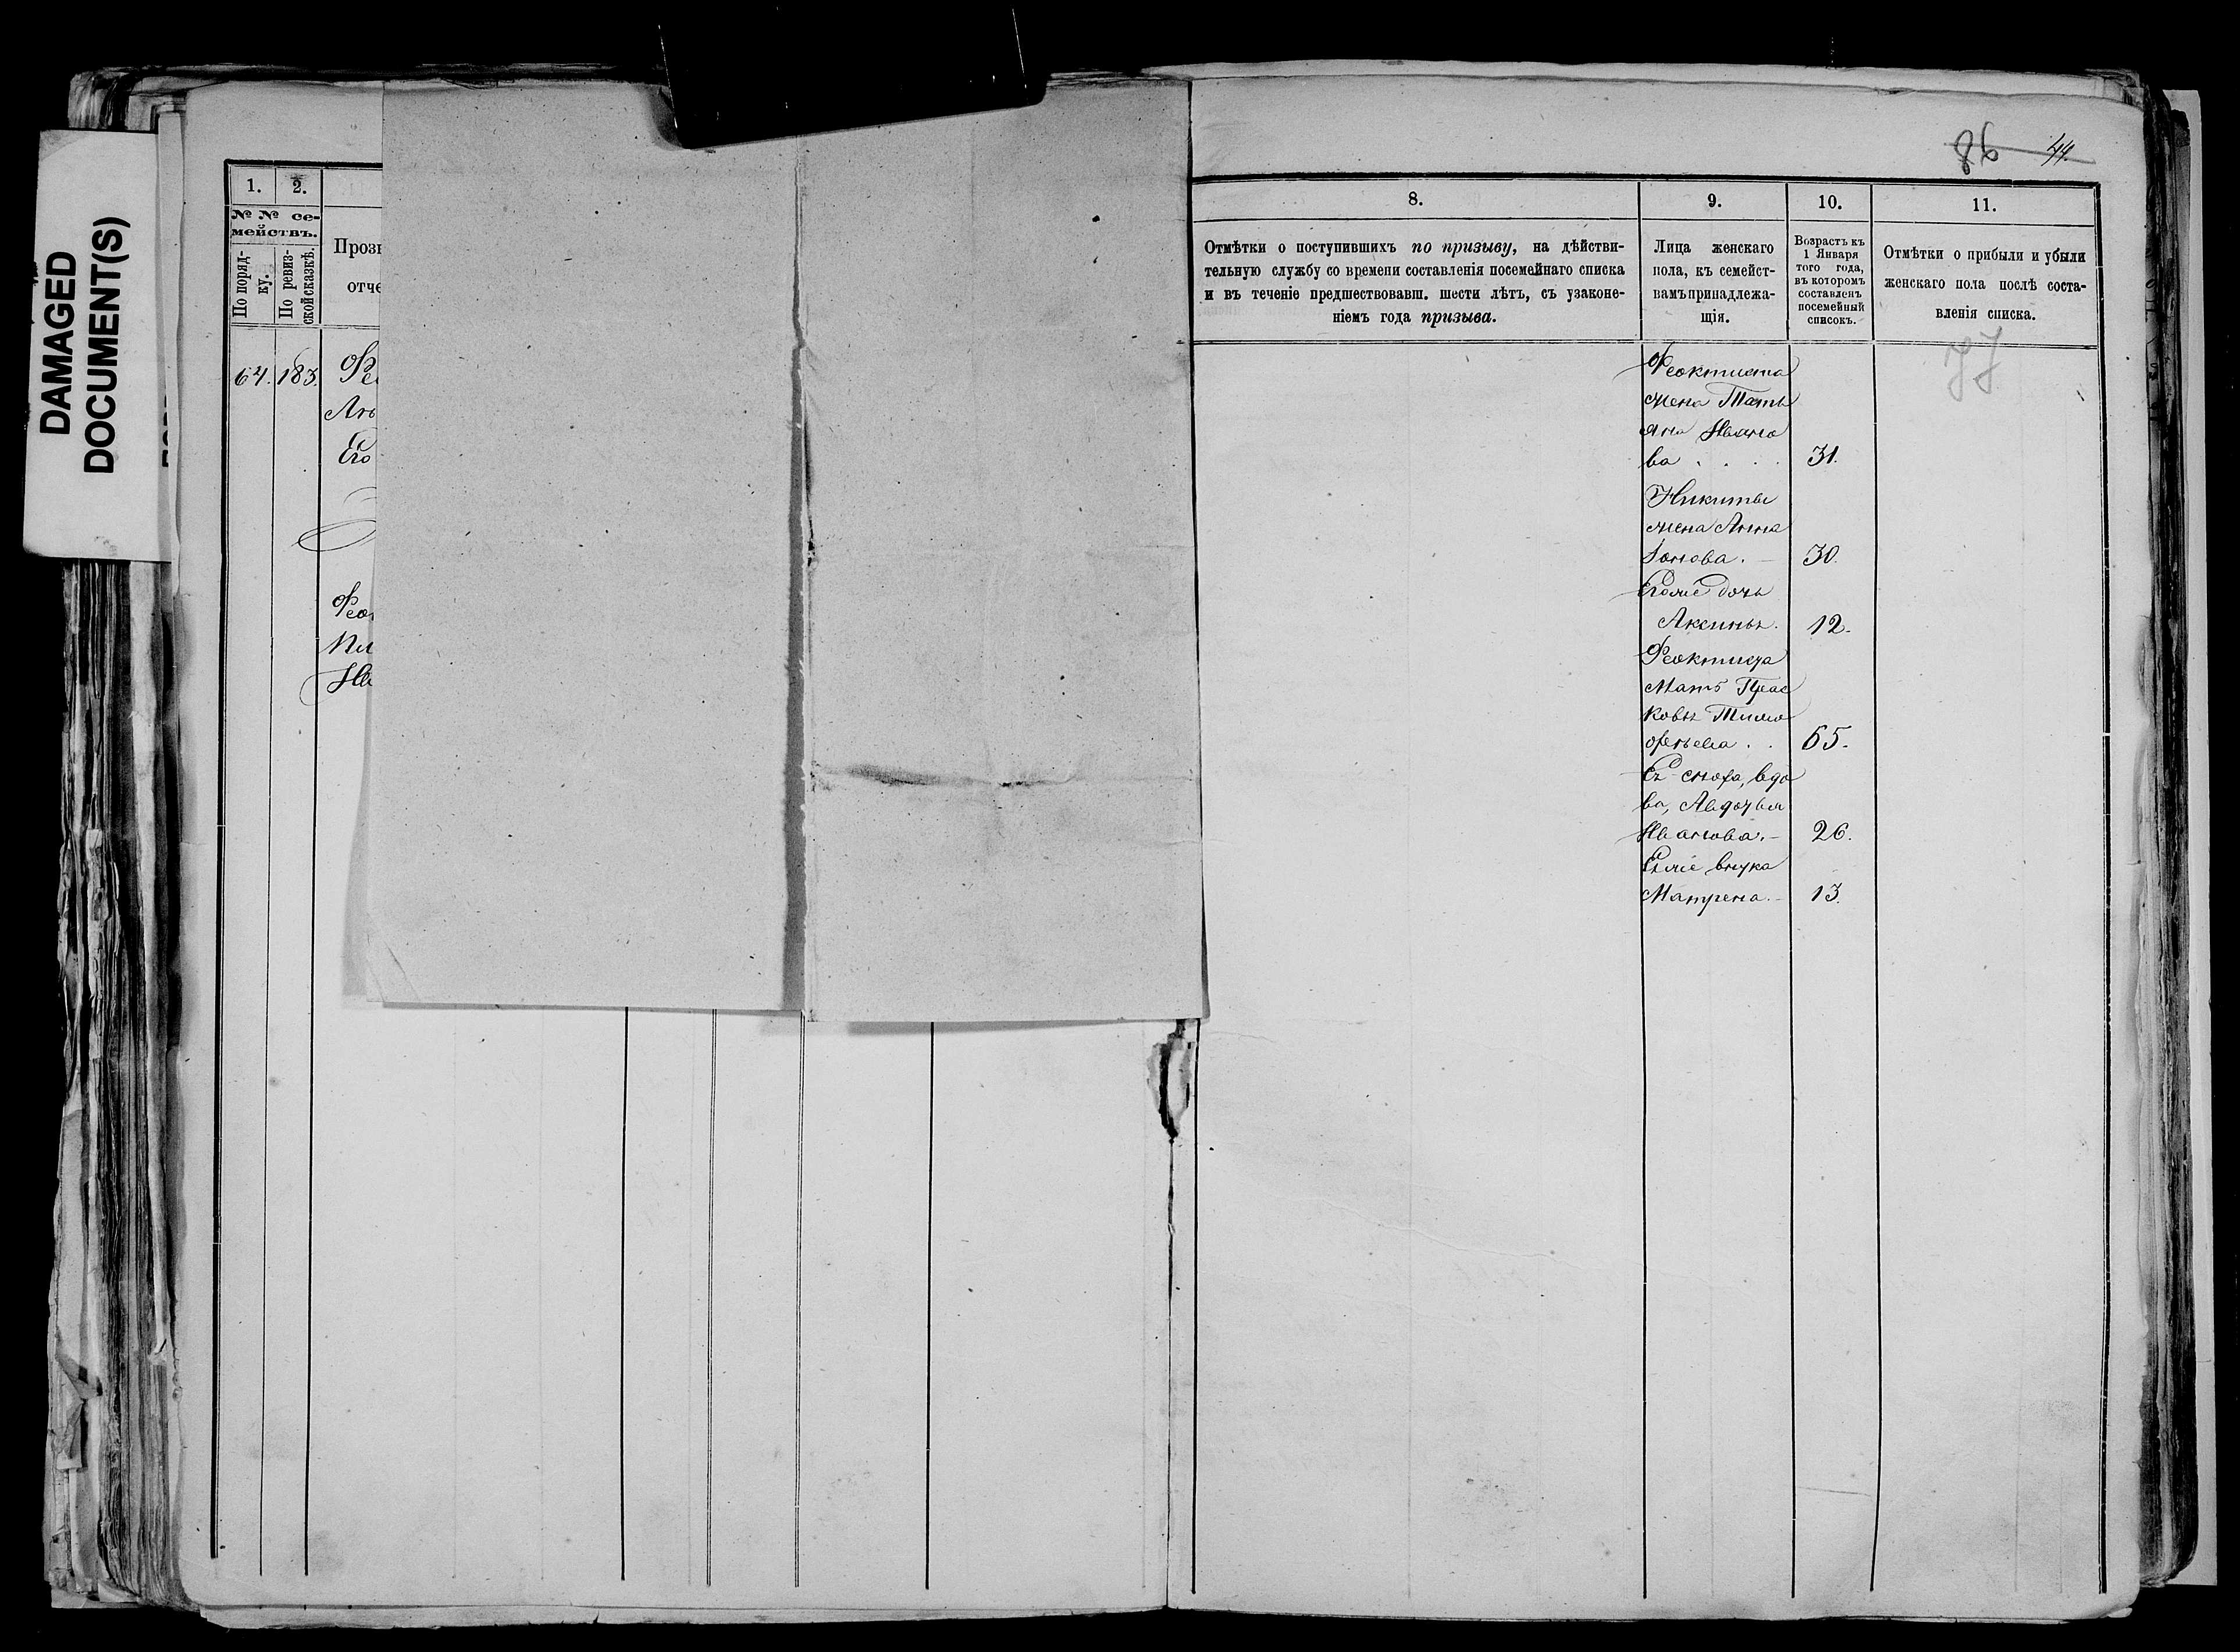 DAMAGED
DOCUMENT(S)
86 44.
1. 2.
№ № се-
мействъ.
По поряд-
ку.
По ревиз-
ской сказкѣ.
отче
64. 183.
Его
8.
Отмѣтки о поступившихъ по призыву, на дѣйстви-
тельную службу со времени составленія посемейнаго списка
и въ теченіе предшествовавш. шести лѣтъ, съ узаконе-
ніемъ года призыва.
9.
Лица женскаго
пола, къ семейст-
вамъ принадлежа-
щія.
10.
Возрастъ къ
1 Января
того года,
въ которомъ
составленъ
посемейный
списокъ.
11.
Отмѣтки о прибыли и убыли
женскаго пола послѣ соста-
вленія списка.
Феоктиста
жена Тать
яна Ивано
ва . . . . 31.
Никиты
жена Анна
30.
Еголіе дочь
Аксинья. 12.
Феоктиста
Мать Прас
ковья Тимо
фѣева . . 65.
Ея сноха, вдо
ва, Авдотья
Иванова. – 26.
внука
Матрена. – 13.